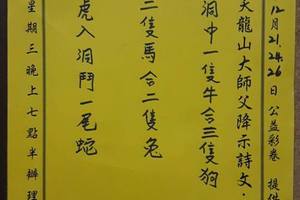 12月21.24.26日公益彩卷 提供
天龍山大師父降示詩文.
洞中一隻牛合三隻狗
二隻馬合二隻兔
虎入洞鬥一尾蛇
星期三晚上七點半辦理